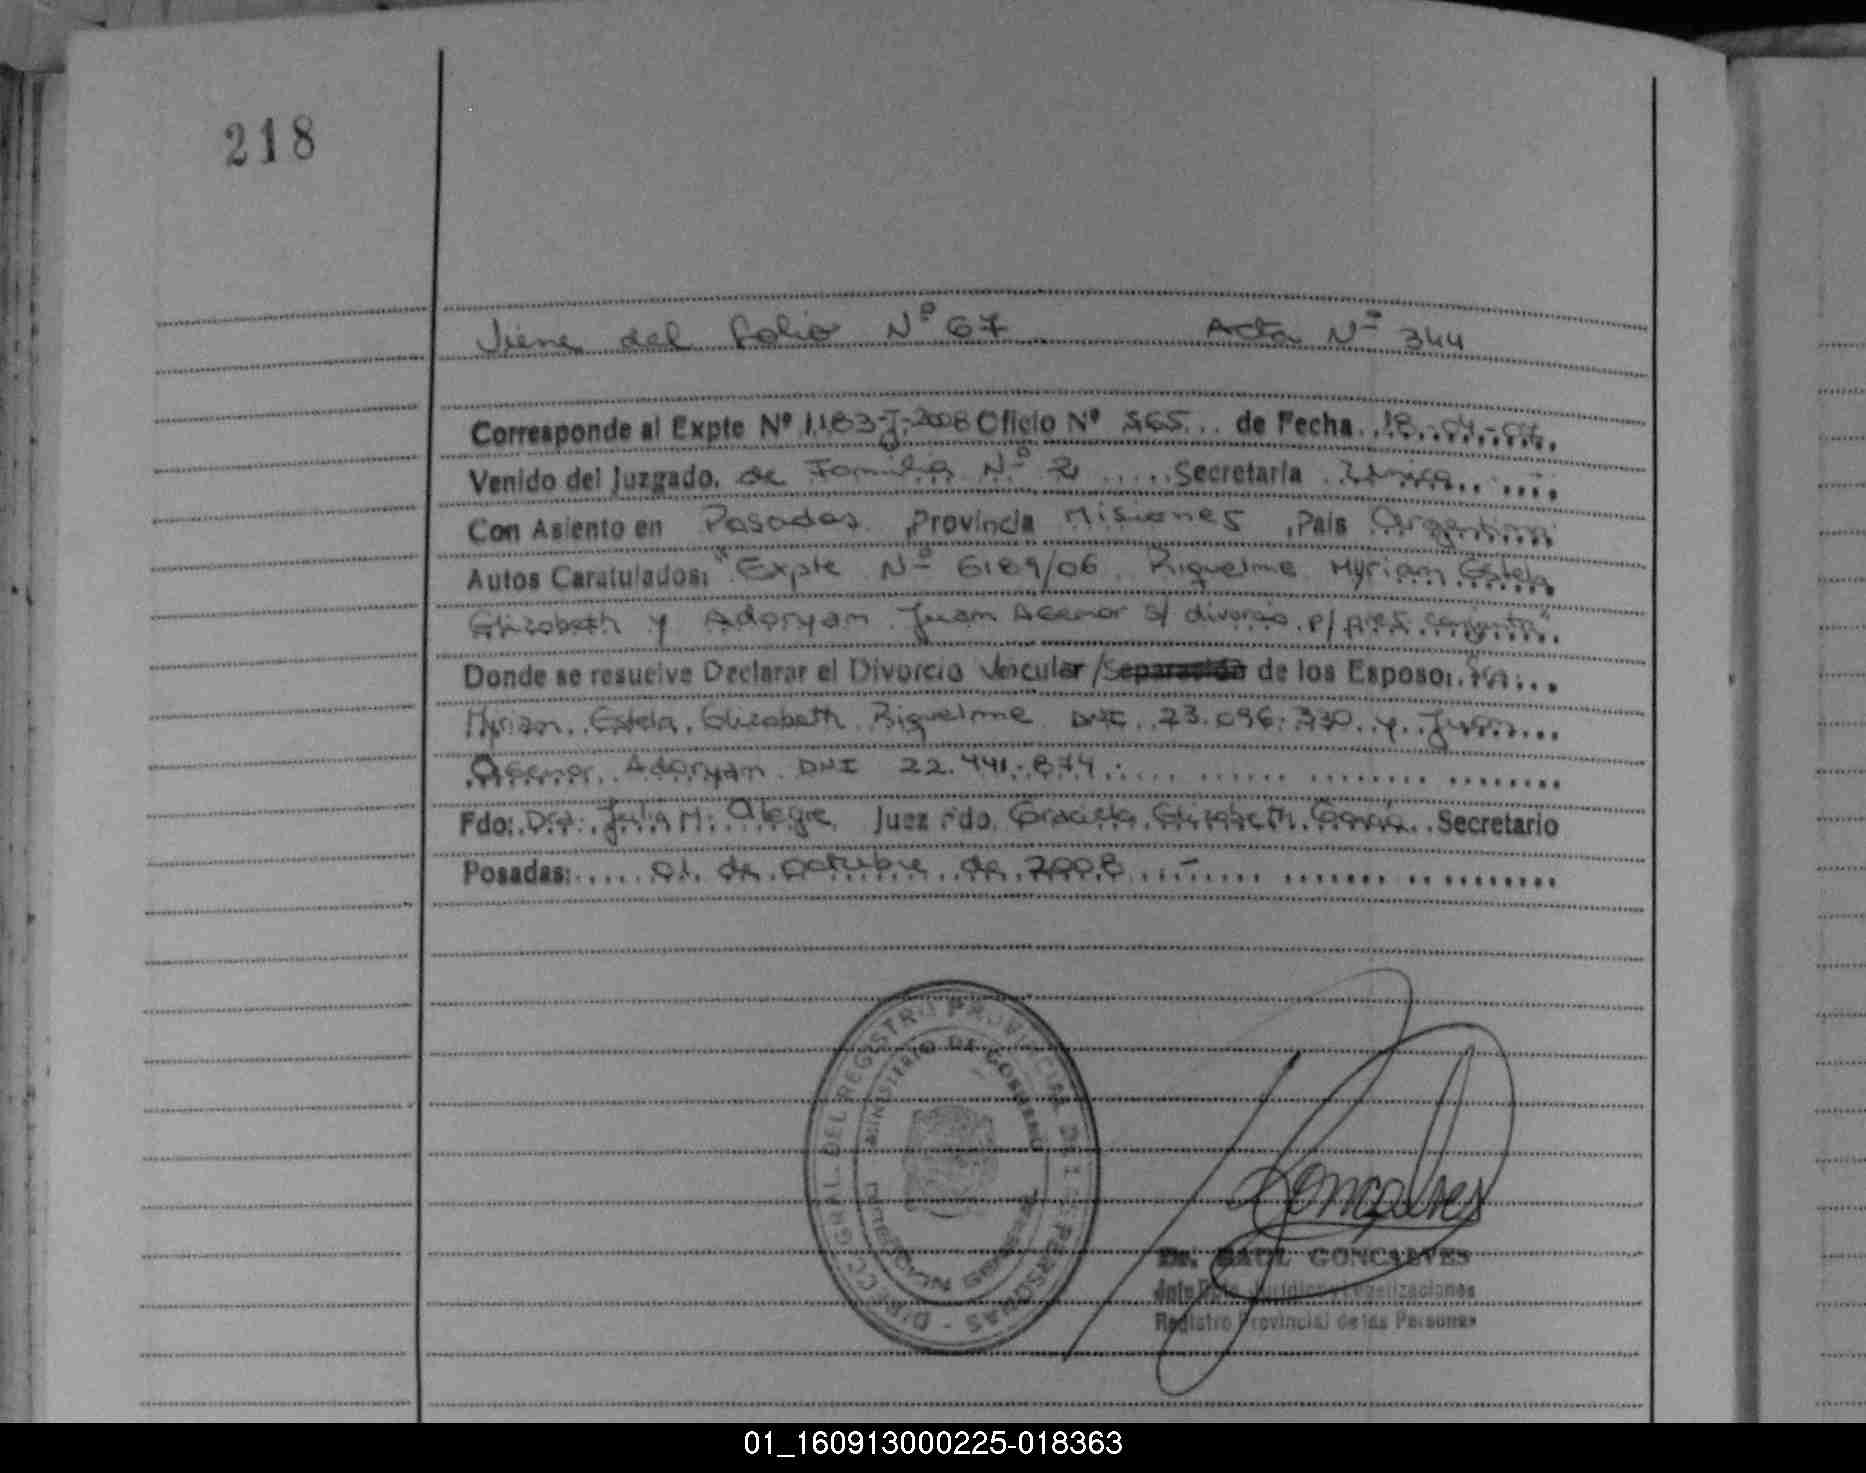 218
Viene del folio Nº 67 Acta Nº 344
Corresponde al Expte Nº 1183-J-2008 Oficio Nº 565 de Fecha 18-04-07
Venido del Juzgado, de Familia Nº 2 Secretaría Única
Con Asiento en Posadas, Provincia Misiones, País Argentina
Autos Caratulados: "Expte Nº 6189/06 Riquelme Myriam Estela
Elizabeth y Adoryan Juan Agenor s/ divorcio p/ pres. conjunta"
Donde se resuelve Declarar el Divorcio Vincular / Separación de los Esposo:
Myriam Estela Elizabeth Riquelme DNI 23.096.330 y Juan
Agenor Adoryan DNI 22.441.874
Fdo: Dra. Julia M. Alegre Juez Fdo. Graciela Elizabeth Secretario
Posadas: 01 de octubre de 2008 -
DIRECC. GRAL. DEL REGISTRO PROVINCIAL DE LAS PERSONAS
MINISTERIO DE GOBIERNO
MISIONES
Goncalves
Dr. RAUL GONCALVES
Jefe Dpto. Jurídico y Legalizaciones
Registro Provincial de las Personas
01_160913000225-018363